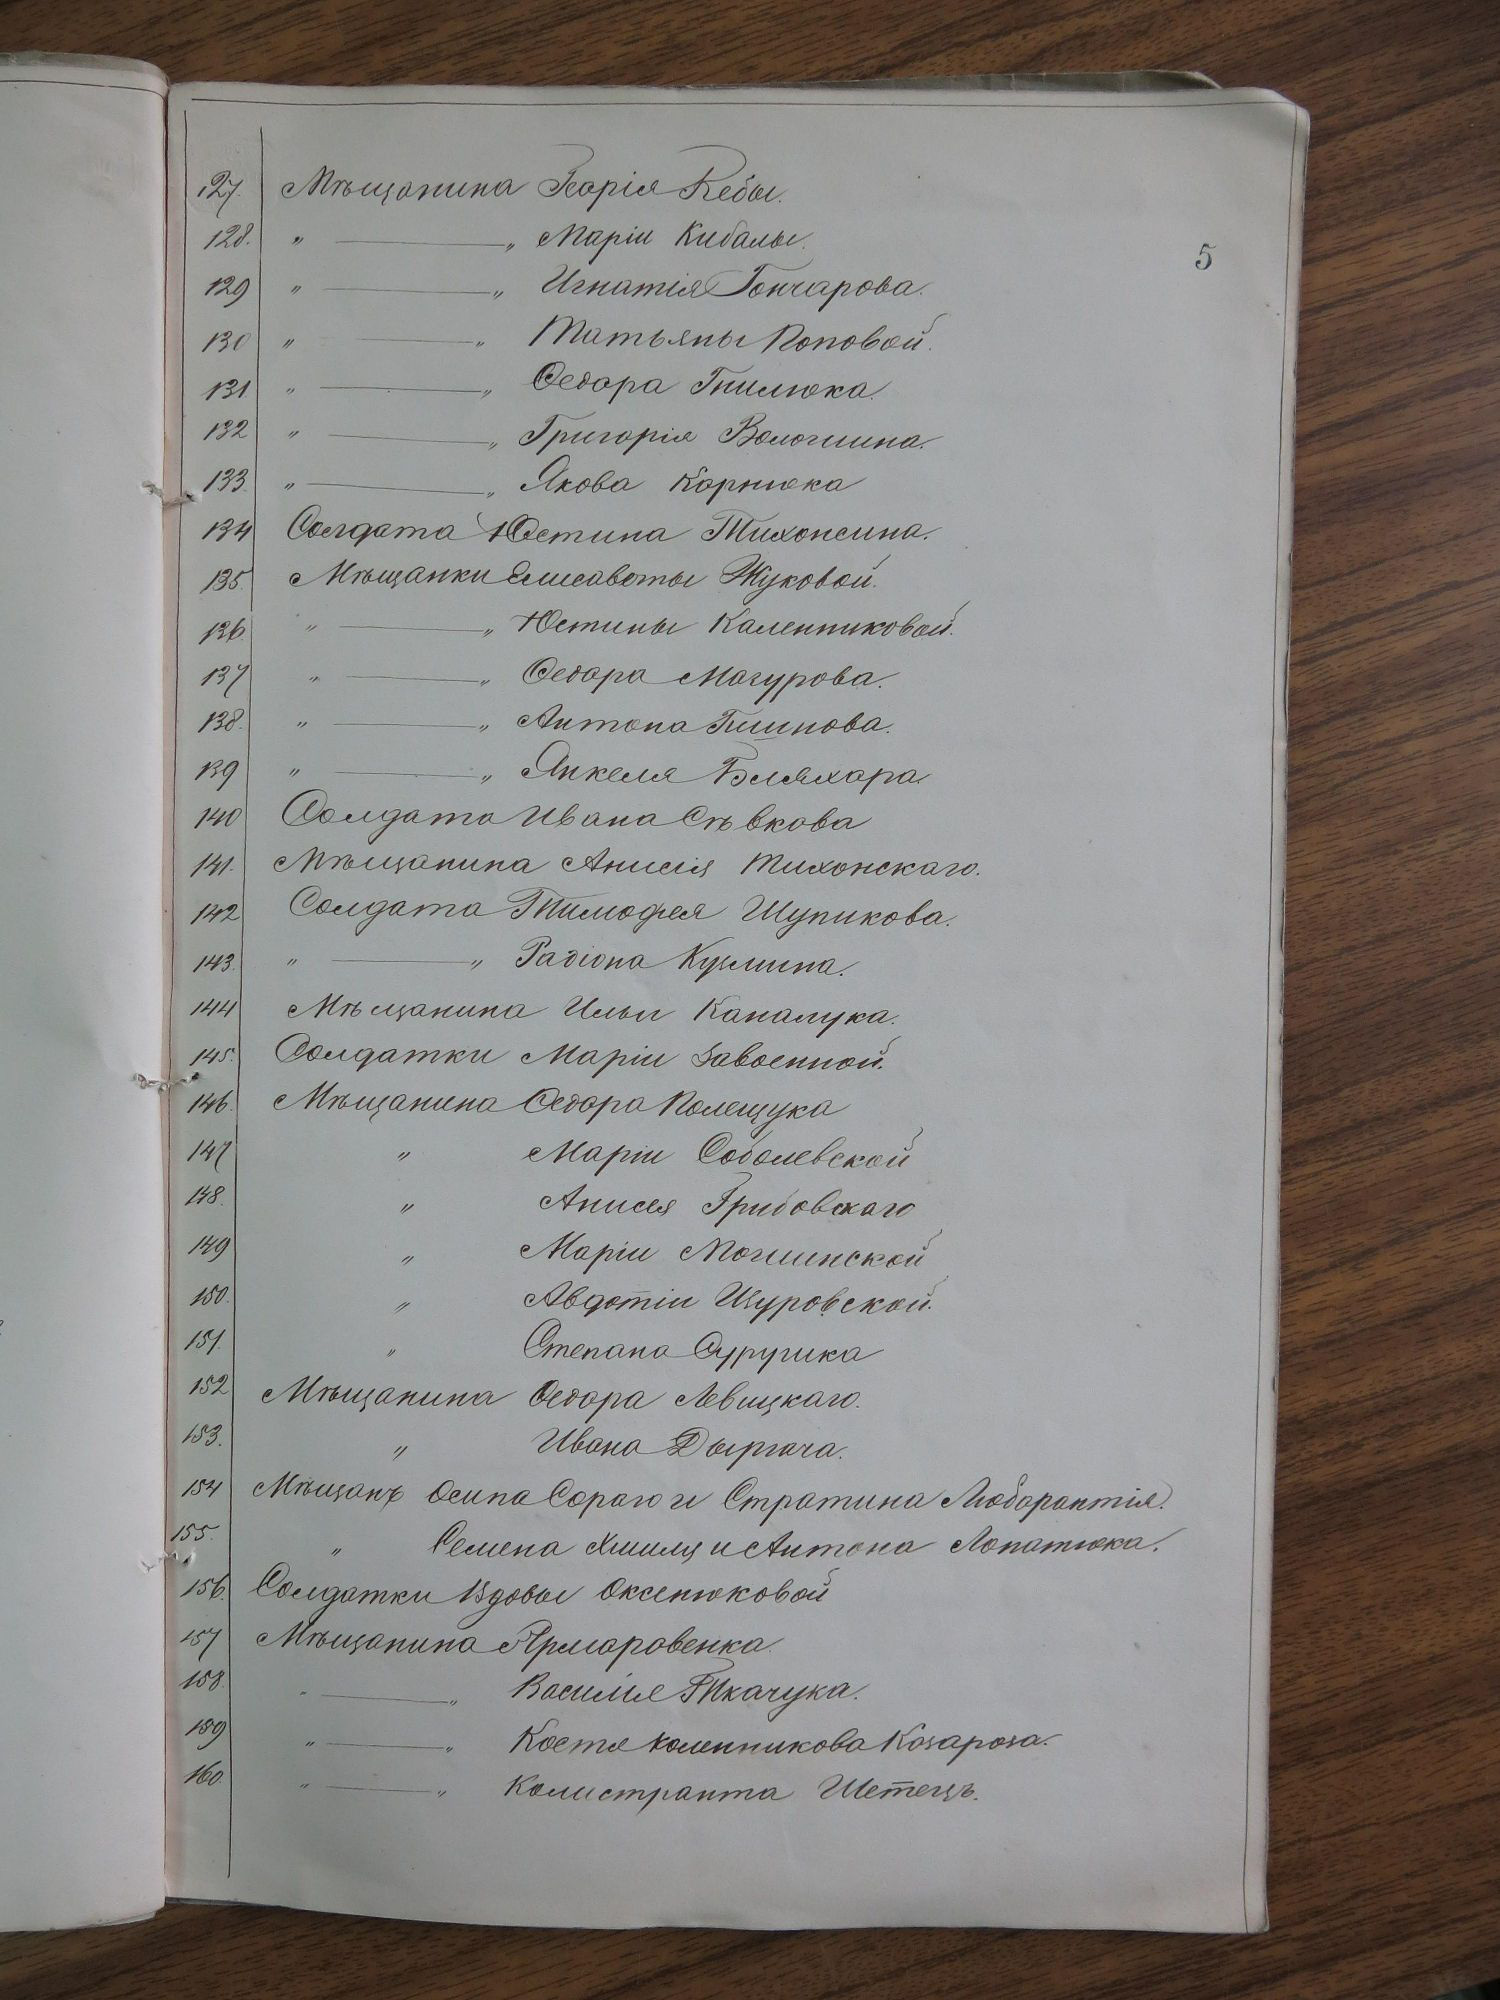 5
127. Мѣщанина Георгія Кебы.
128. " — " Маріи Кибалы.
129 " — " Игнатія Гончарова.
130 " — " Татьяны Поповой.
131 " — " Ѳедора Гнилюка.
132 " — " Григорія Вологшина.
133. " — " Якова Корнюка
134 Солдата Юстина Тихонсина.
135. Мѣщанки Елисаветы Жуковой.
136. " — " Юстины Каленниковой.
137 " — " Ѳедора Магурова.
138. " — " Антона Глинова.
139 " — " Янкеля Бляхара.
140 Солдата Ивана Сѣвкова
141. Мѣщанина Анисія Тихонскаго.
142 Солдата Тимофея Шупикова.
143. " — " Радіона Кузмина.
144 Мѣщанина Ильи Капалука.
145. Солдатки Маріи Завоенной.
146. Мѣщанина Ѳедора Полещука
147 " Маріи Соболевской
148. " Анисея Грибовскаго
149 " Маріи Могилнской
150. " Авдотіи Щуровской.
151. " Степана Суругика
152 Мѣщанина Ѳедора Левицкаго.
153. " Ивана Дыргача.
154 Мѣщанъ Осипа Сорагю и Стратина Любарантія.
155. " Семена Хмиля и Антона Лопатюка.
156. Солдатки Вдовы Оксенюковой
157 Мѣщанина Ярмаровенка.
158. " — " Василія Ткачука.
159 " — " Костя Коленникова Козароза.
160. " — " Калистранта Шетецъ.